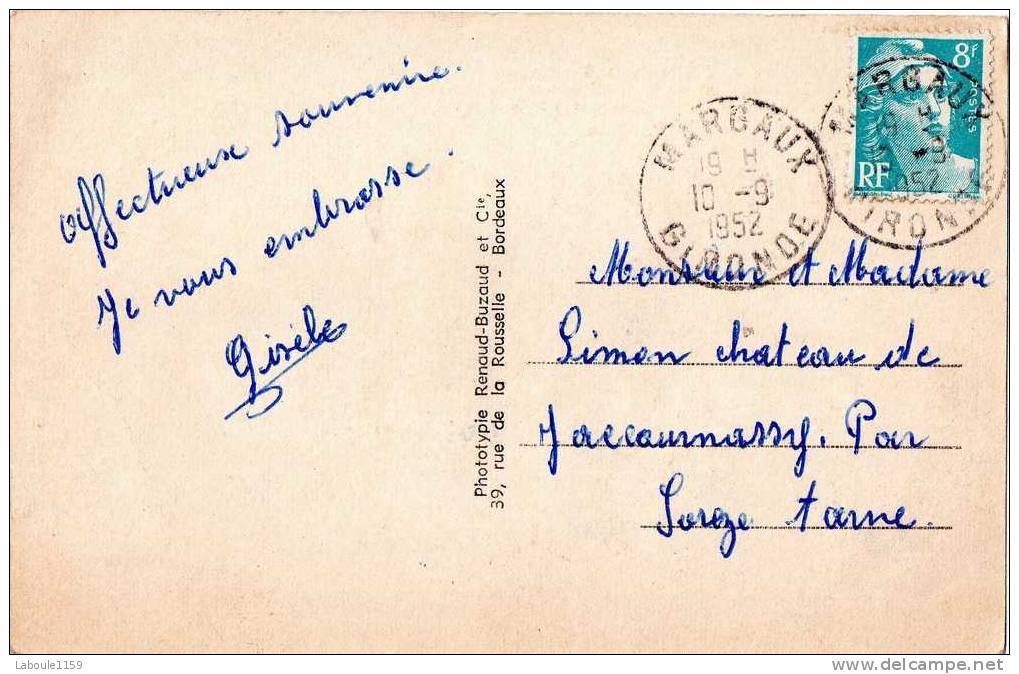 affectueuse souvenire.
Je vous embrasse.
Gisèle
Phototypie Renaud-Buzaud et Cie,
39, rue de la Rousselle - Bordeaux
8F
POSTES
RF
MARGAUX
19 H
10 -9
1952
GIRONDE
MARGAUX
19 H
-9
1952
GIRONDE
Monsieur et Madame
Simon chateau de
Jaccournassy. Par
Soreze tarne.
Laboule1159
delcampe.net